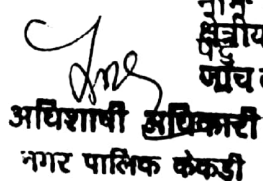 नाम
क्षेत्रीय
पद
जांच
अधिशाषी अधिकारी
नगर पालिक केकडी